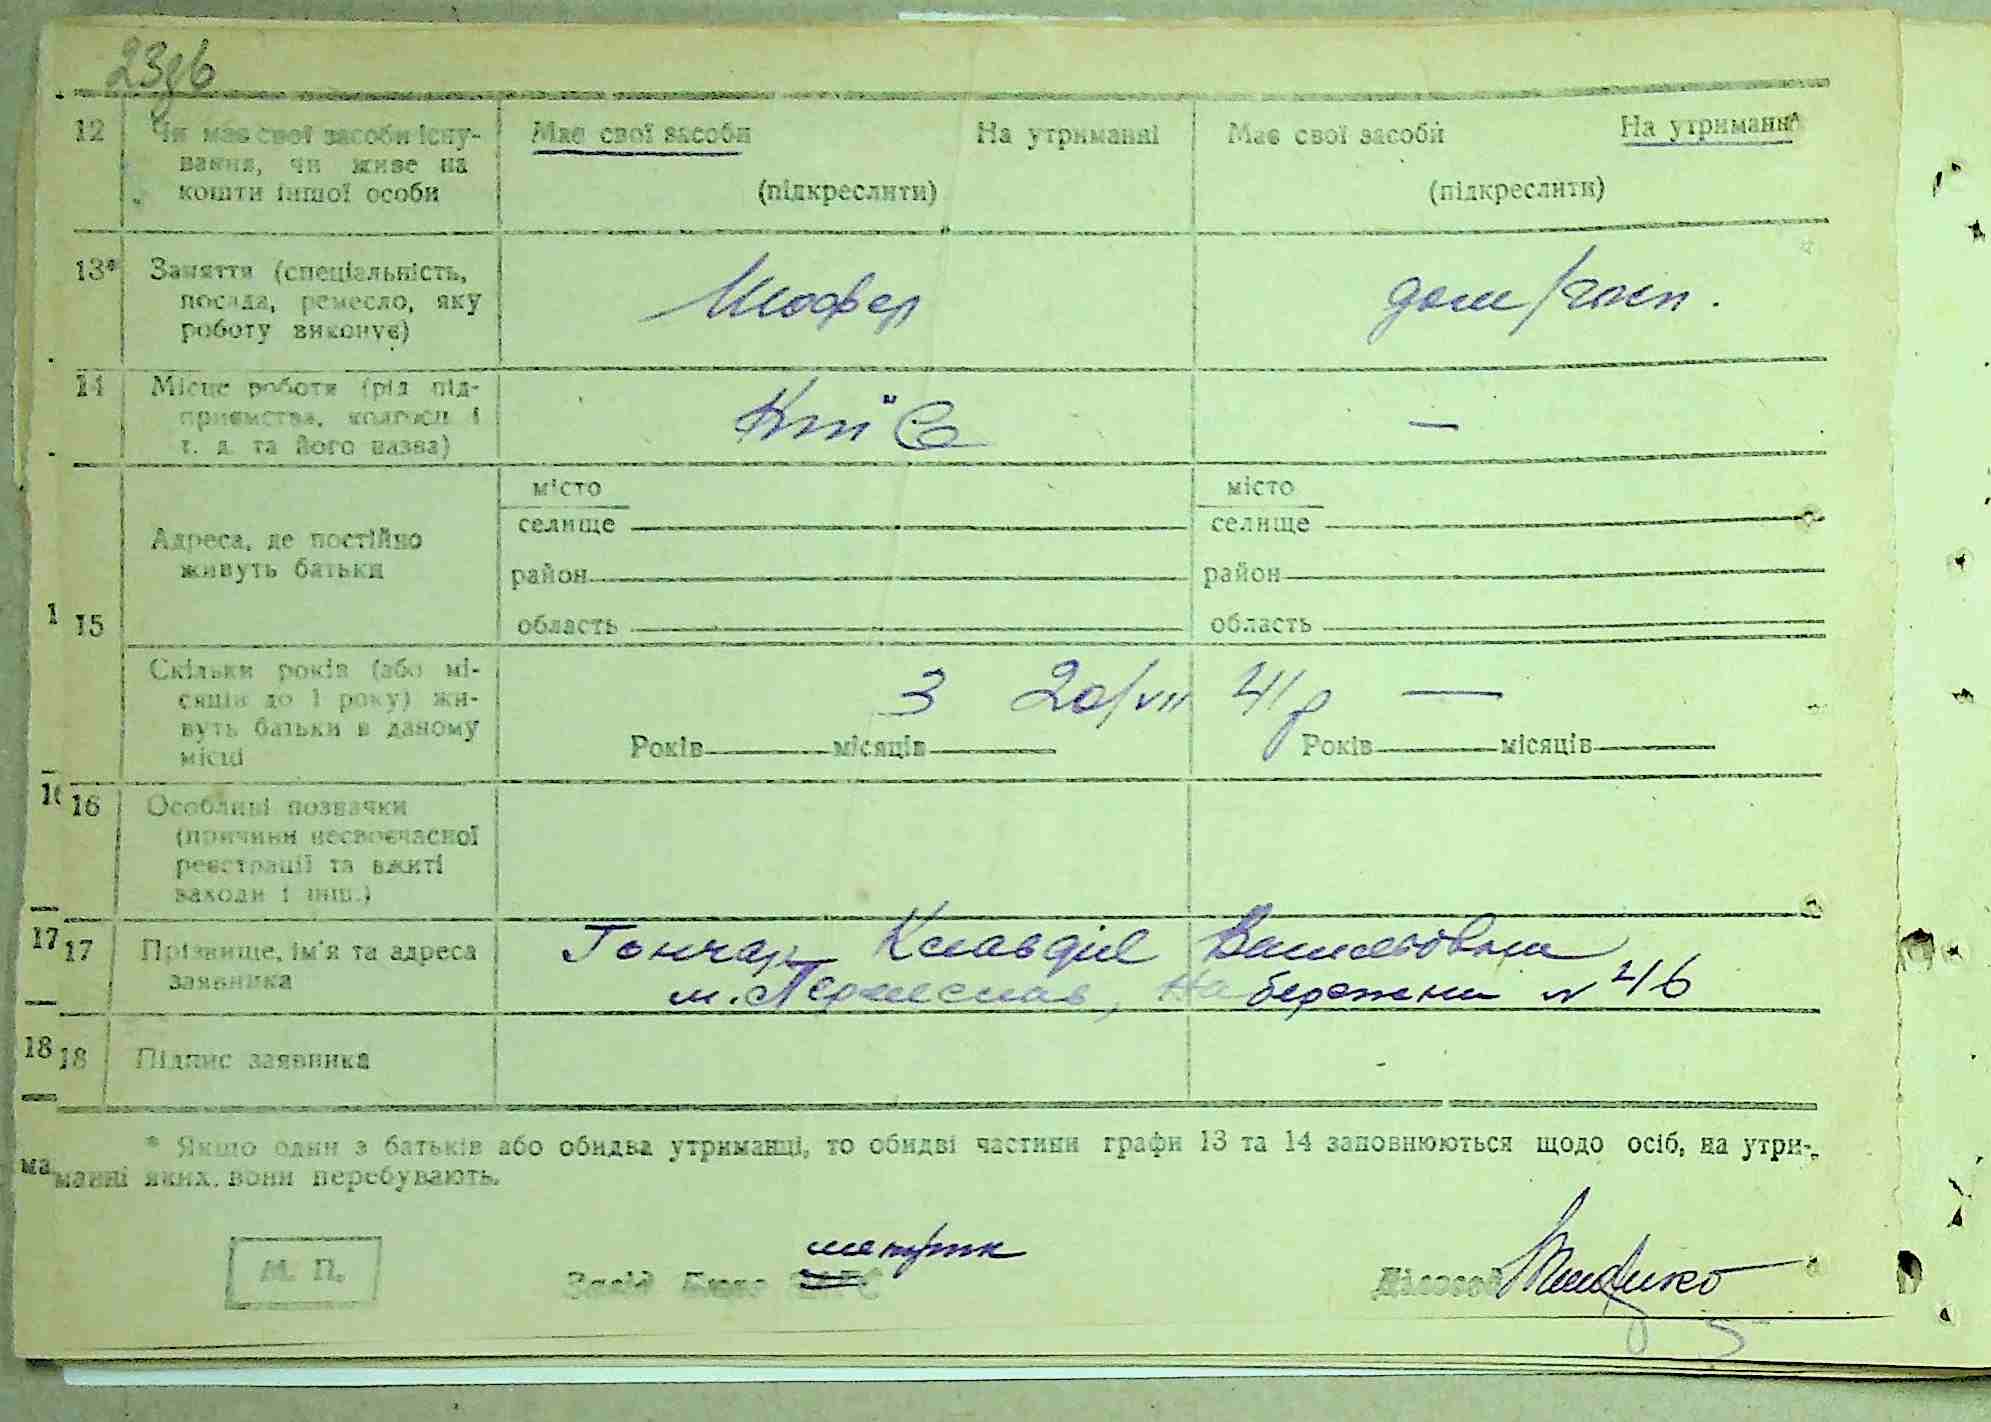 23зв
12 Чи має свої засоби існу-
вання, чи живе на
кошти іншої особи
Має свої засоби На утриманні
(підкреслити)
Має свої засоби На утриманні
(підкреслити)
13* Заняття (спеціальність,
посада, ремесло, яку
роботу виконує)
Шофер
дом/госп.
14 Місце роботи (рід під-
приємства, колгосп і
т. д. та його назва)
Київ
—
15 Адреса, де постійно
живуть батьки
місто
селище
район
область
місто
селище
район
область
Скільки років (або мі-
сяців до 1 року) жи-
вуть батьки в даному
місці
З 20/VII 41 р —
Років місяців
Років місяців
16 16 Особливі позначки
(причини несвоєчасної
реєстрації та вжиті
заходи і інш.)
17 17 Прізвище, ім'я та адреса
заявника
Гончар Клавдія Васильовна
м. Переяслав, Набережна № 46
18 18 Підпис заявника
* Якщо один з батьків або обидва утриманці, то обидві частини графи 13 та 14 заповнюються щодо осіб, на утри-
ма манні яких вони перебувають.
метрик
М. П. Завід Бюро ЗАГС Діловод